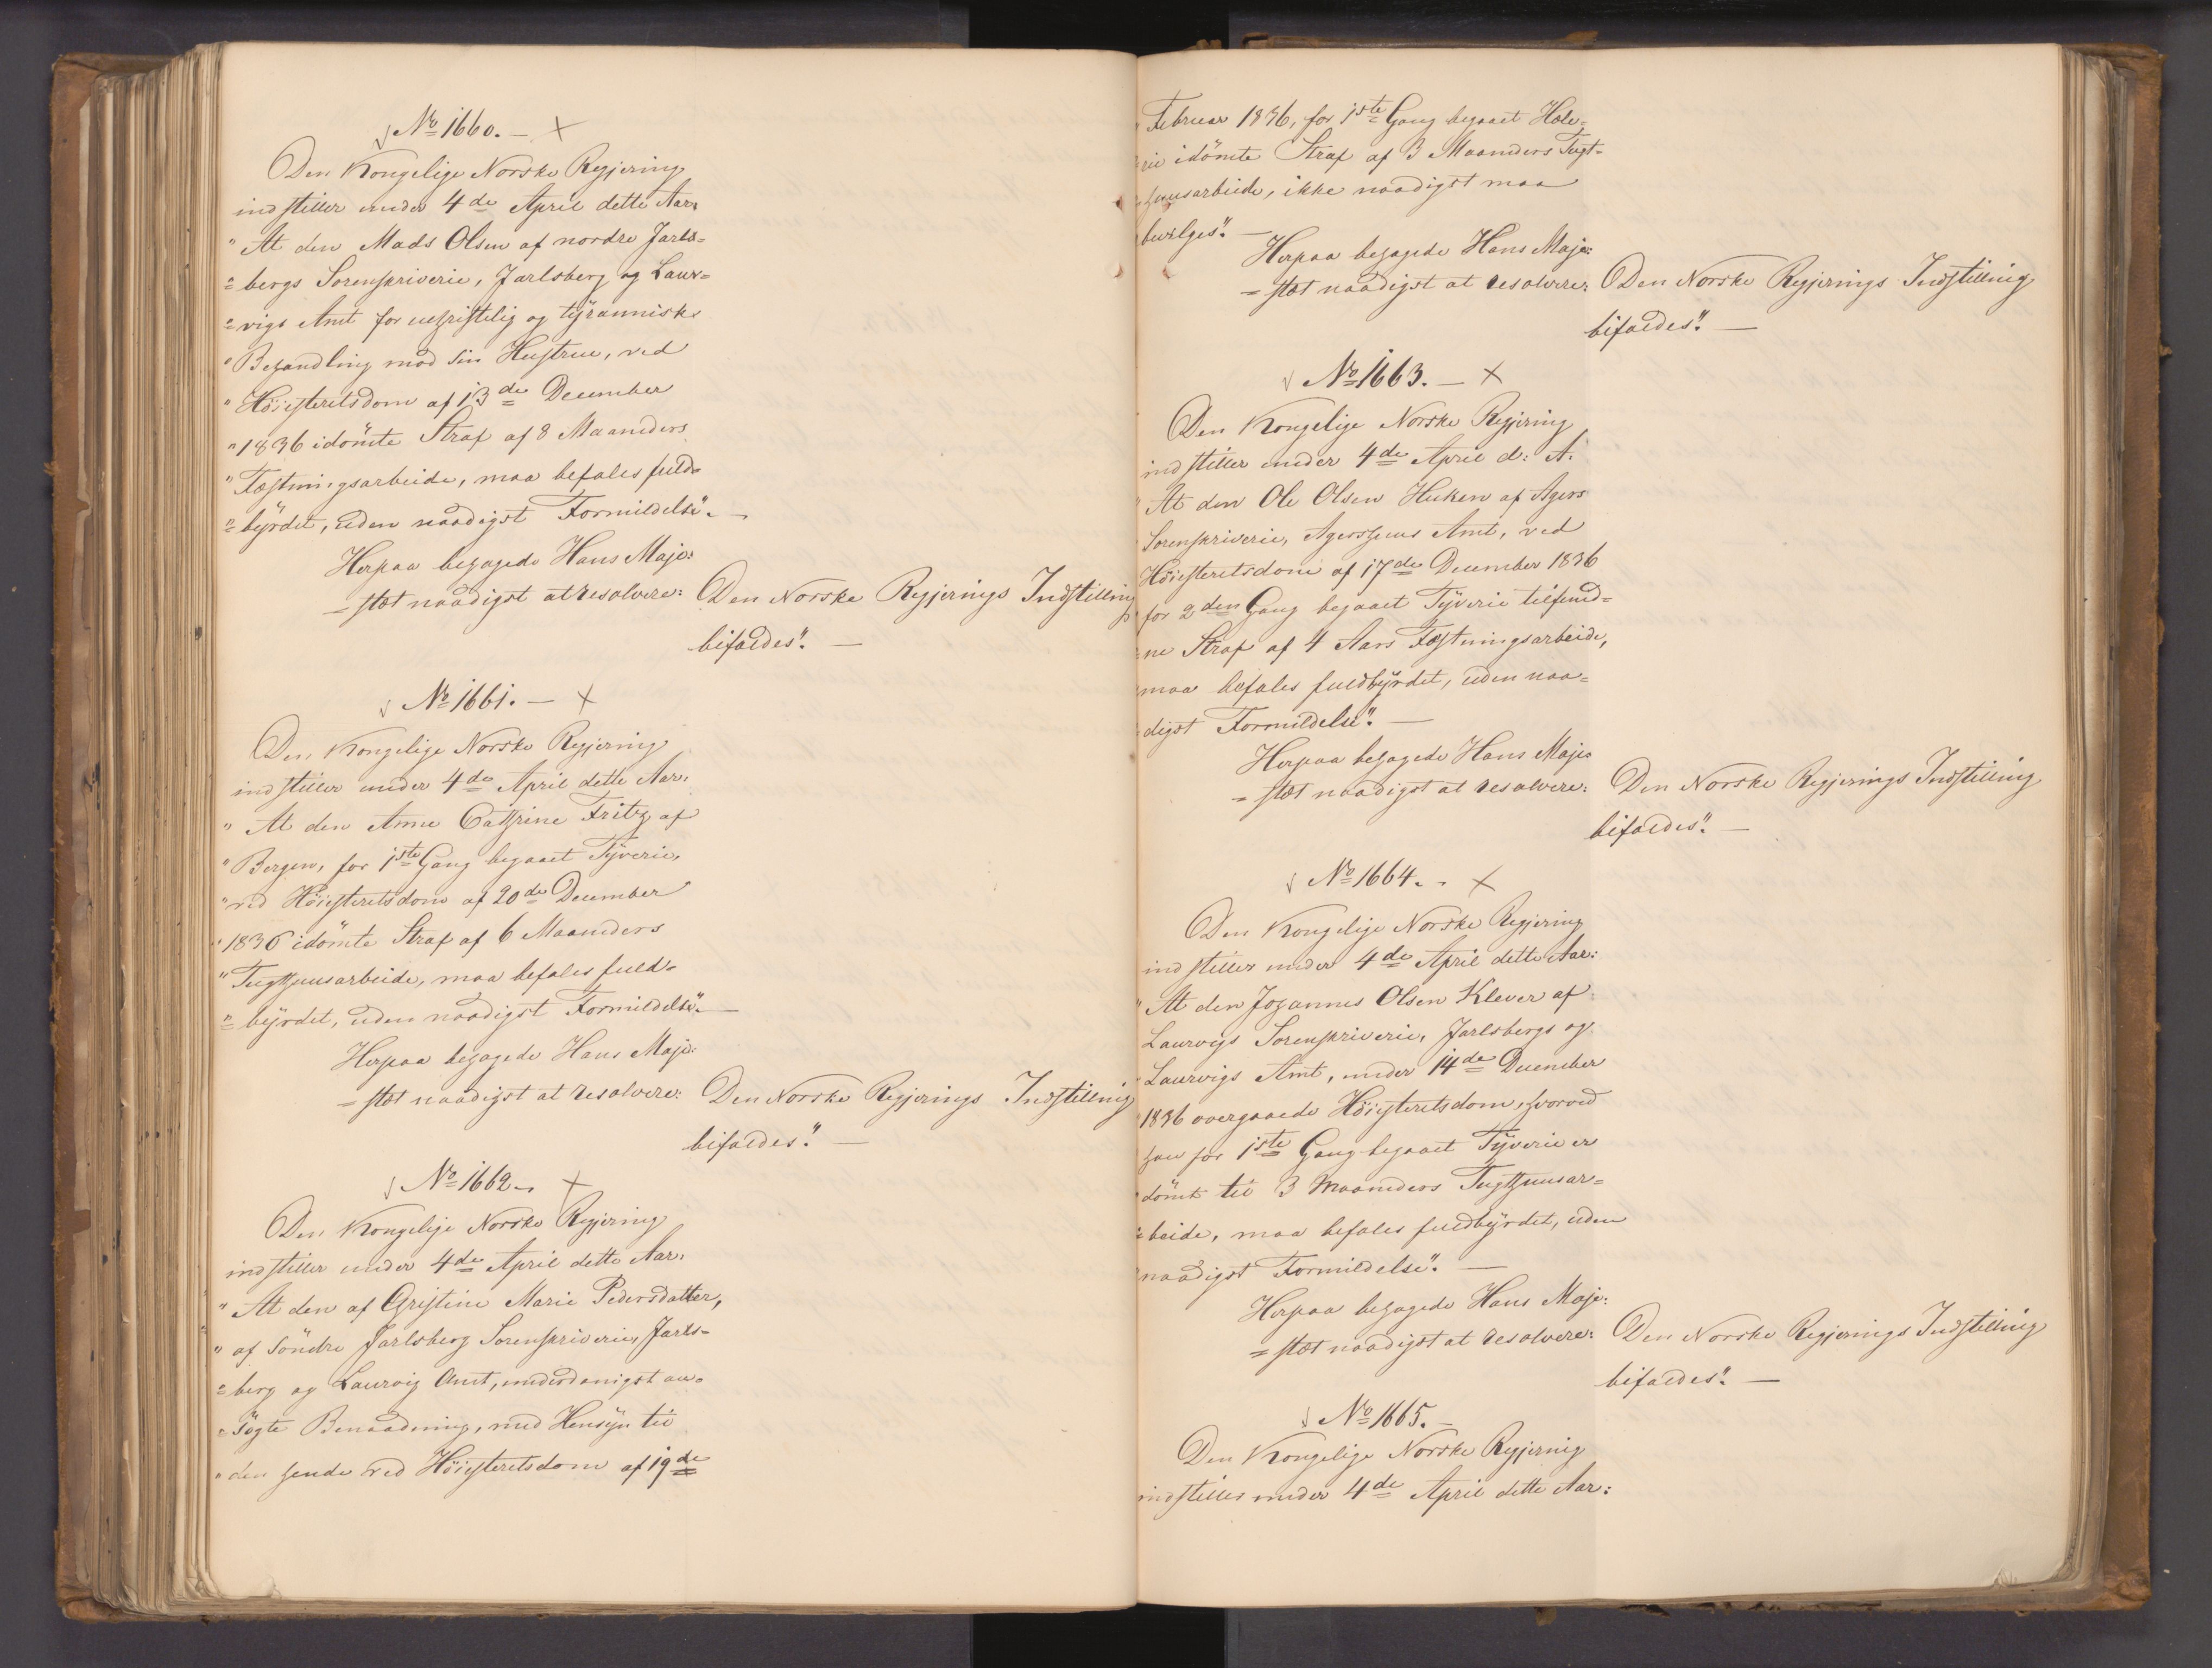 No 1660. — ×
Den Kongelige Norske Regjering
indstiller under 4de April dette Aar:
" At den Mads Olsen af nordre Jarls=
= bergs Sorenskriverie, Jarlsberg og Laur=
= vigs Amt for uchristelig og tyrannisk
" Behandling mod sin Hustrue, ved
" Höiesteretsdom af 13de December
" 1836 idömte Straf af 8 Maaneders
" Fæstningsarbeide, maa befales fuld=
"= byrdet, uden naadigst Formildelse". —
Herpaa behagede Hans Maje=
= stæt naadigst at resolvere: Den Norske Regjerings Indstilling
bifaldes". —
No 1661. — ×
Den Kongelige Norske Regjering
indstiller under 4de April dette Aar:
" At den Anne Cathrine Fritz af
" Bergen, for 1ste Gang begaaet Tyverie,
" ved Höiesteretsdom af 20de December
" 1836 idömte Straf af 6 Maaneders
" Tugthuusarbeide, maa befales fuld=
"= byrdet, uden naadigst Formildelse". —
Herpaa behagede Hans Maje=
= stæt naadigst at resolvere: Den Norske Regjerings Indstilling
bifaldes". —
No 1662. — ×
Den Kongelige Norske Regjering
indstiller under 4de April dette Aar:
" At den af Christine Marie Pedersdatter,
" af Söndre Jarlsberg Sorenskriverie, Jarls=
= berg og Laurvig Amt, underdanigst an=
= sögte Benaadning, med Hensyn til
" den hende ved Höiesteretsdom af 19de
" Februar 1836, for 1ste Gang begaaet Hæle=
= rie idömte Straf af 3 Maaneders Tugt=
= huusarbeide, ikke naadigst maa
bevilges". —
Herpaa behagede Hans Maje=
= stæt naadigst at resolvere: Den Norske Regjerings Indstilling
bifaldes". —
No 1663. — ×
Den Kongelige Norske Regjering
indstiller under 4de April d: A:
" At den Ole Olsen Huken af Agers
Sorenskriverie, Agershuus Amt, ved
Höiesteretsdom af 17de December 1836
for 2den Gang begaaet Tyverie tilfund=
= ne Straf af 4 Aars Fæstningsarbeide,
maa befales fuldbyrdet, uden naa=
digst Formildelse". —
Herpaa behagede Hans Maje=
= stæt naadigst at resolvere: Den Norske Regjerings Indstilling
bifaldes". —
No 1664. - ×
Den Kongelige Norske Regjering
indstiller under 4de April dette Aar:
" At den Johannes Olsen Klever af
Laurvigs Sorenskriverie, Jarlsbergs og
" Laurvigs Amt, under 14de December
" 1836 overgaaede Höiesteretsdom, hvorved
han for 1ste Gang begaaet Tyverie er
" dömt til 3 Maaneders Tugthuusar=
= beide, maa befales fuldbyrdet, uden
naadigst Formildelse". —
Herpaa behagede Hans Maje=
= stæt naadigst at resolvere: Den Norske Regjerings Indstilling
bifaldes". —
No 1665. —
Den Kongelige Norske Regjering
indstiller under 4de April dette Aar: